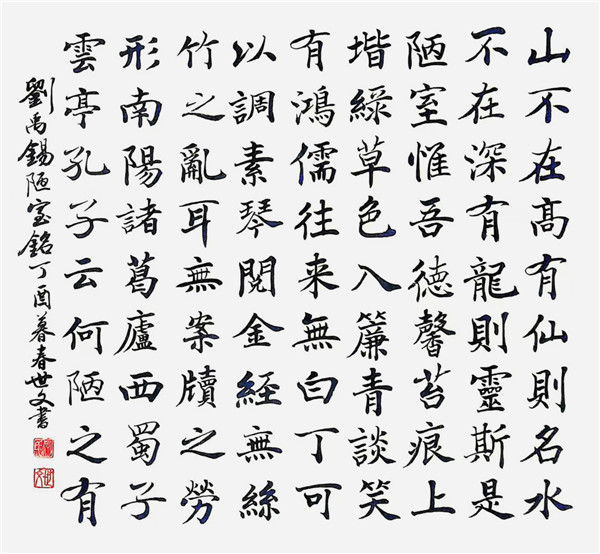 山不在高有仙則名水
不在深有龍則靈斯是
陋室惟吾德馨苔痕上
堦綠草色入簾青談笑
有鴻儒往来無白丁可
以調素琴閱金經無絲
竹之亂耳無案牘之勞
形南陽諸葛廬西蜀子
雲亭孔子云何陋之有
劉禹錫陋室銘丁酉暮春世文書